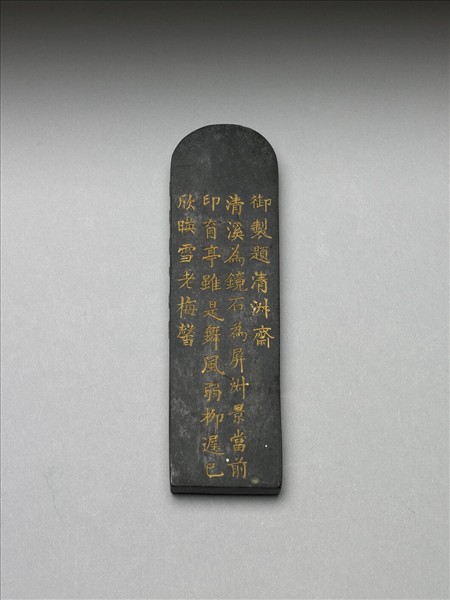 御製題清淑齋
清溪為鏡石為屏淑景當前
印亭雖是舞風弱柳遲已
欣映雪老梅馨